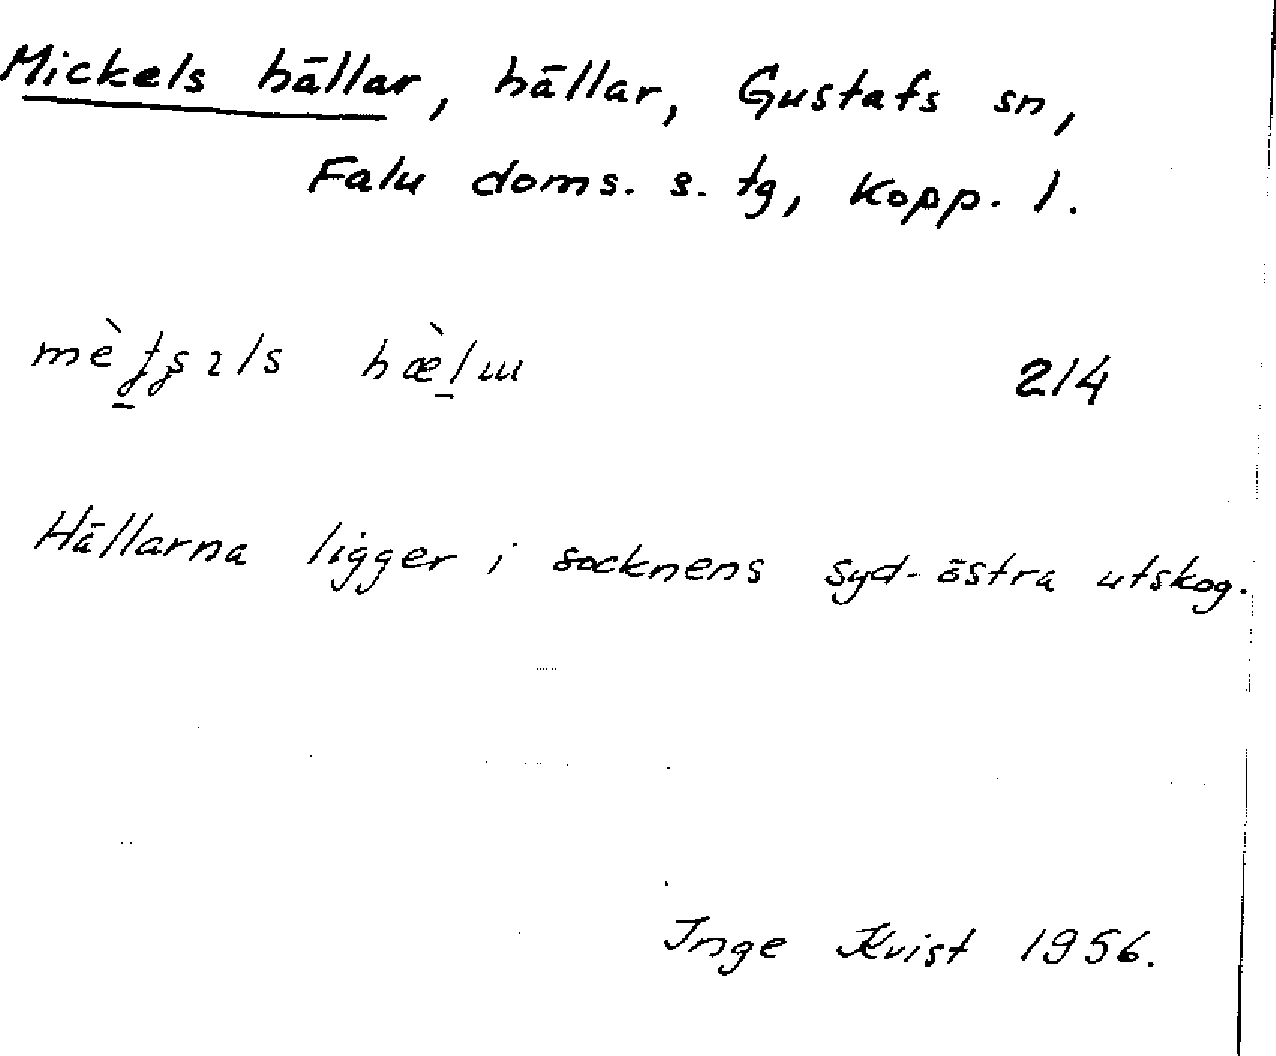 Mickels hällar, hällar, Gustafs sn,
Falu doms. s. tg, Kopp. l.
214
Hällarna ligger i socknens syd-östra utskog.
Inge Kvist 1956.